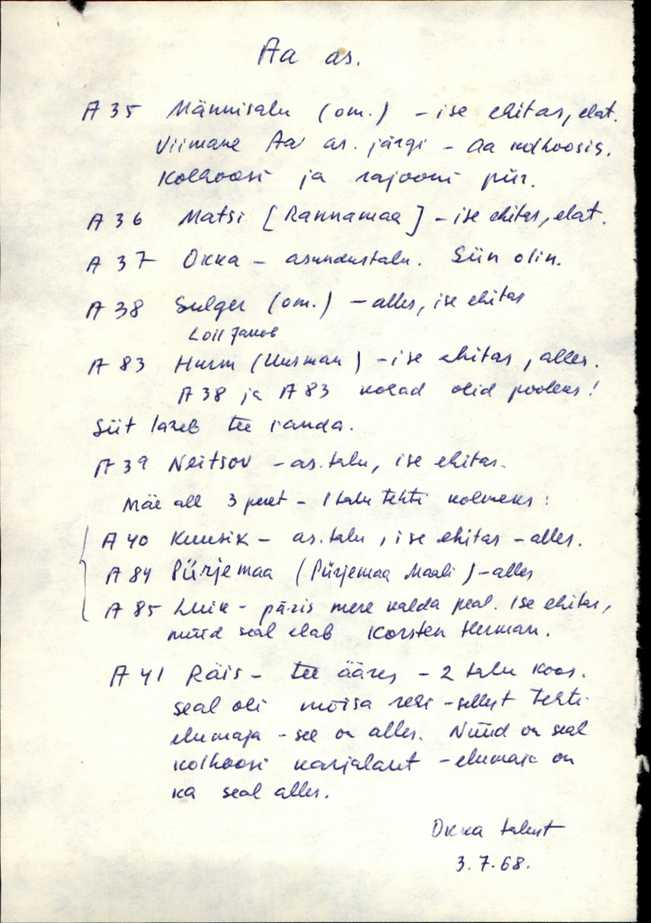 Aa as.
A 35 Männisalu (om.) - ise ehitas, elat.
Viimane Aa as. järgi - Aa kolhoosis.
Kolhoosi ja rajooni piir.
A 36 Matsi [Rannamaa] - ise ehitas, elat.
A 37 Okka - asundustalu. Siin olin.
A 38 Sulger (om.) - alles, ise ehitas
Loil Jakob
A 83 Hurm (Uusman) - ise ehitas, alles.
A 38 ja A 83 kohad olid pooleks!
Siit läheb tee randa.
A 39 Neitsov - as. talu, ise ehitas.
Mäe all 3 peret - 1 talu tehti kolmeks:
A 40 Kuusik - as. talu, ise ehitas - alles.
A 84 Pürjemaa (Pürjemaa Maali) - alles
A 85 Luik - päris mere kalda peal. Ise ehitas,
nüüd seal elab Korsten Herman.
A 41 Räis - tee ääres - 2 talu koos.
Seal oli mõisa rehi - sellest tehti
elumaja - see on alles. Nüüd on seal
kolhoosi karjalaut - elumaja on
ka seal alles.
Okka talust
3.7.68.